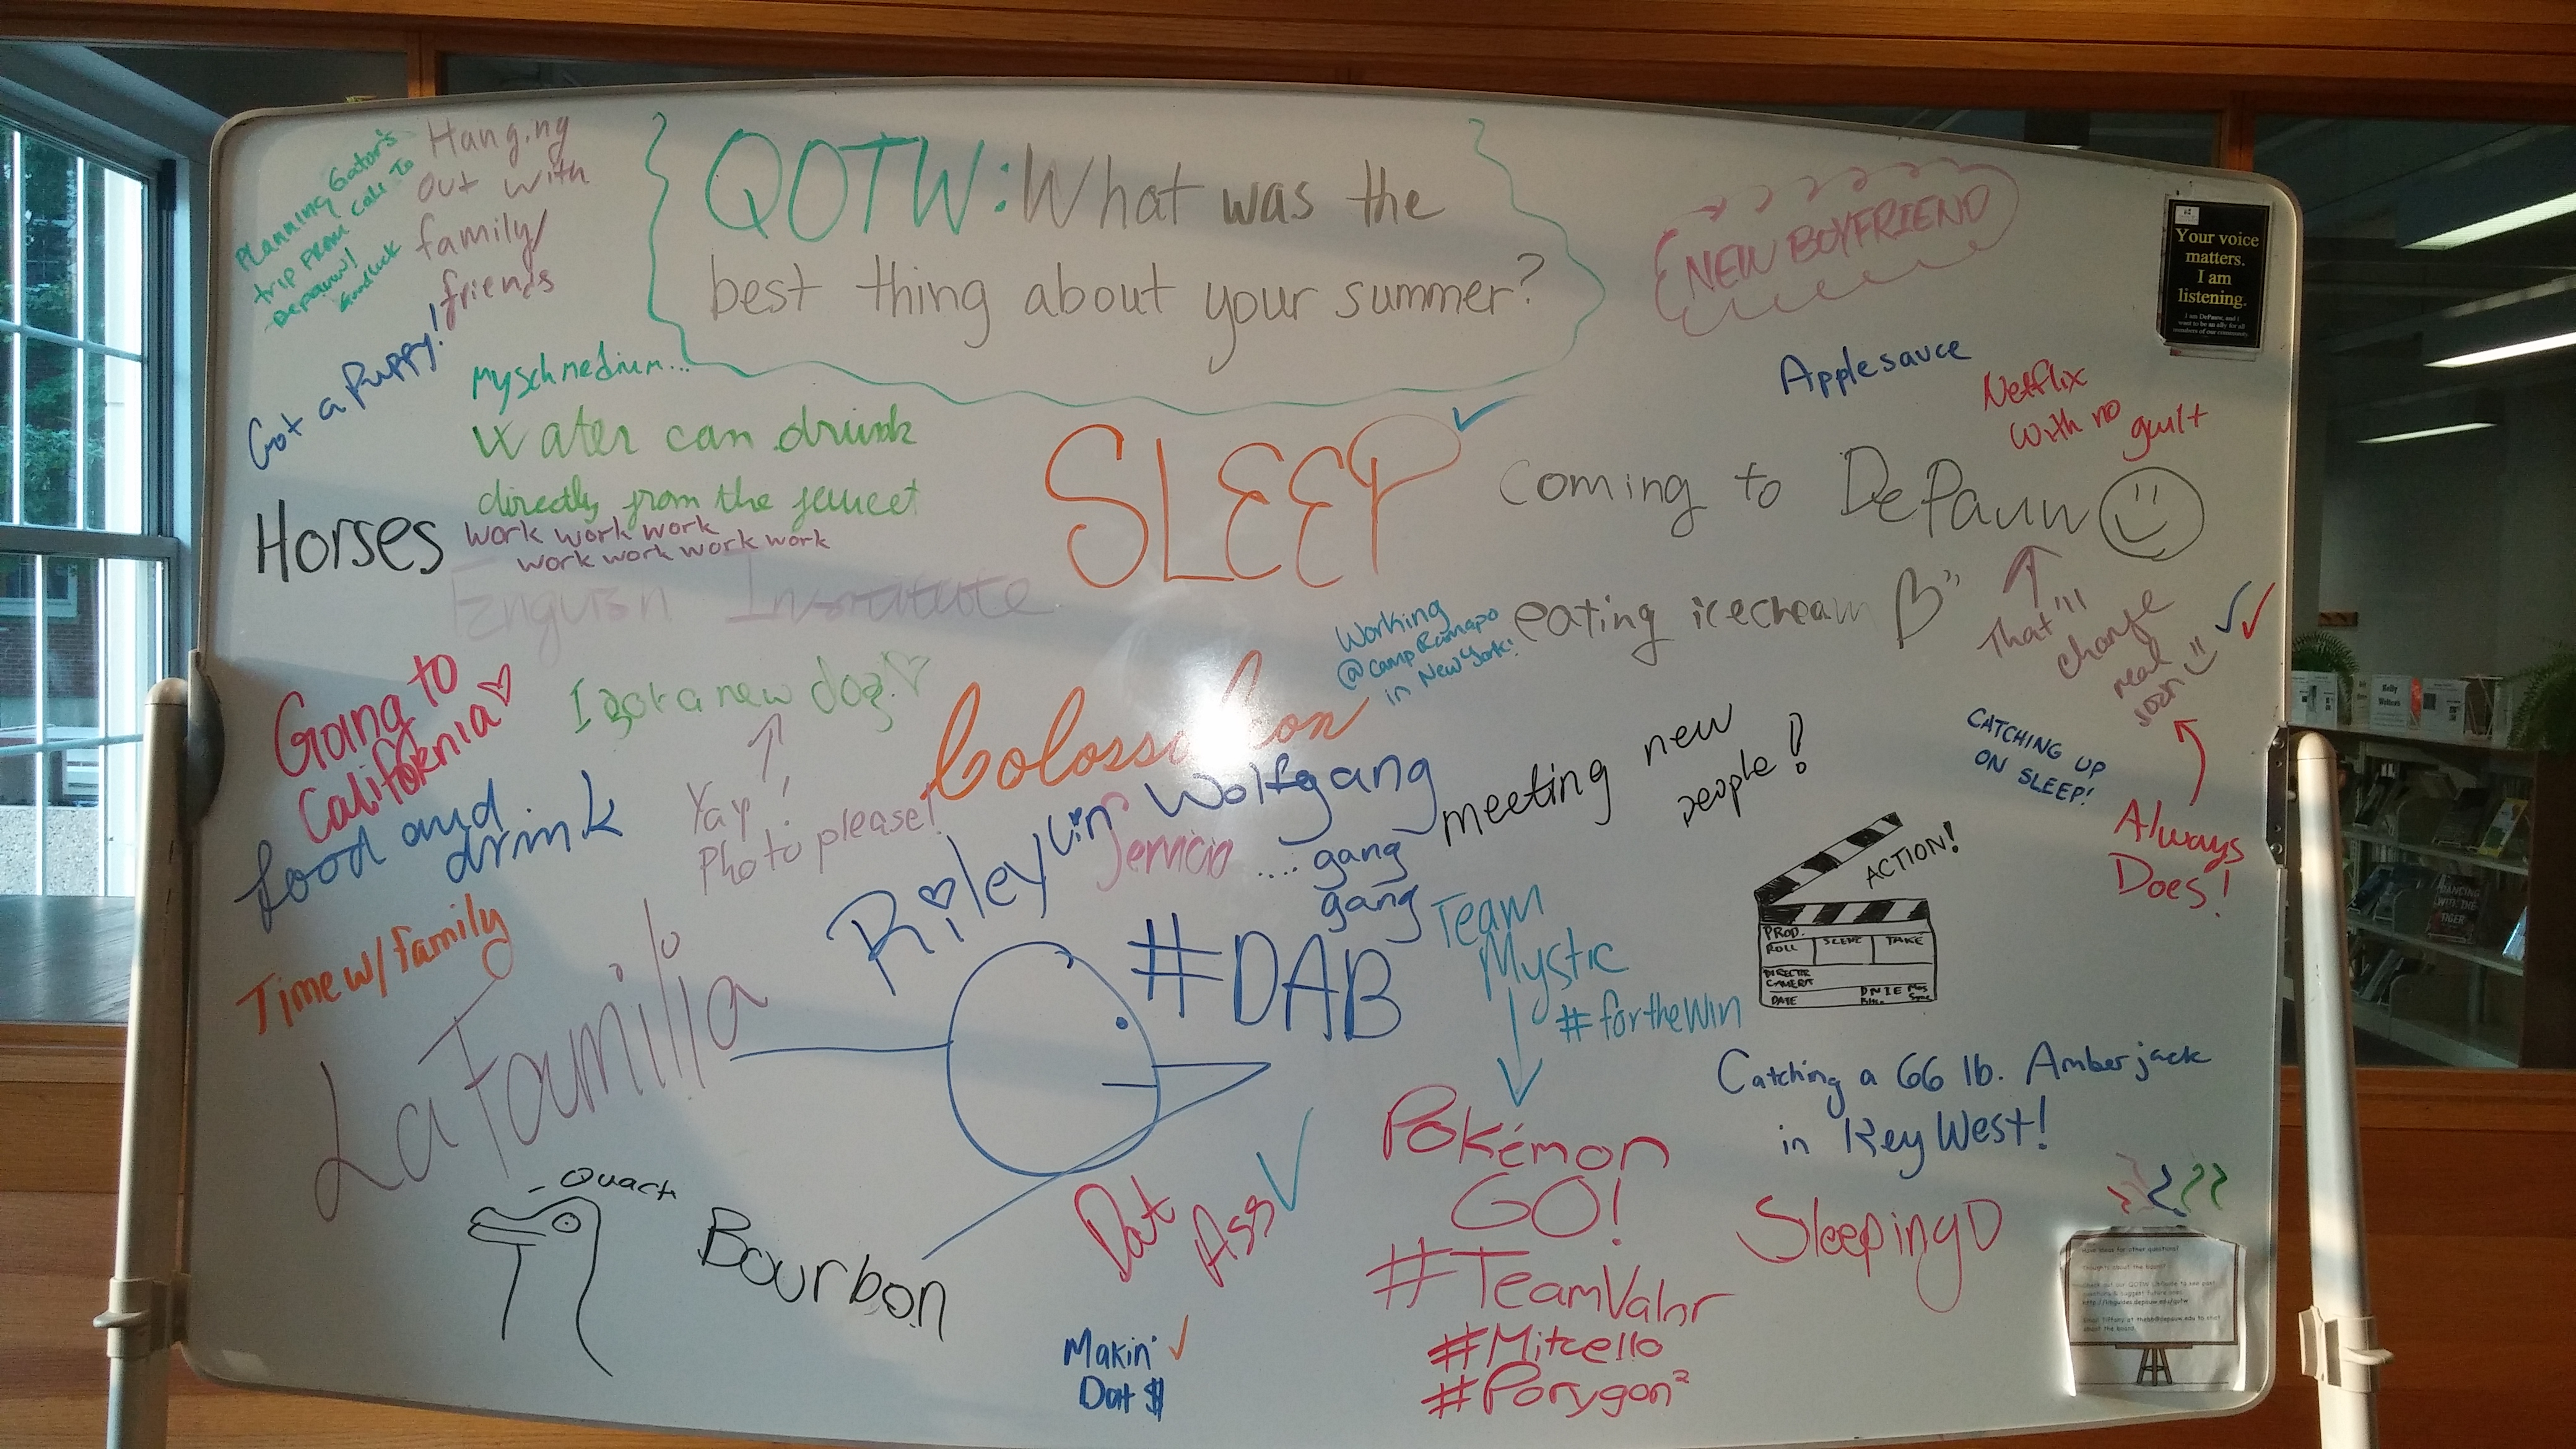 QOTW: What was the
best thing about your summer?
Planning Gator's
trip from Cale to
Depauw!
Hanging
out with
family/
friends
NEW BOYFRIEND
Your voice
matters.
I am
listening.
I am DePauw, and I
want to be an ally for all
members of our community.
Got a Puppy!
Myschmedium...
Water can drink
directly from the faucet
Applesauce
Netflix
with no
guilt
SLEEP
coming to DePauw
Horses
work work work
work work work work
Institute
Working
@camp Ramapo
in New York!
eating icecream
That'll
change
real
soon
Going to
California
I got a new dog!
Yay!
Photo please!
CATCHING UP
ON SLEEP!
Always
Does!
food and
drink
Riley
Wolfgang
.... gang
gang
meeting new
people!
ACTION!
PROD.
ROLL SCENE TAKE
DIRECTOR
CAMERA
DATE
Time w/ family
La Familia
#DAB
Team
Mystic
#fortheWin
Catching a 66 lb. Amberjack
in Key West!
- Quack
Bourbon
Dat
Ass
Pokémon
GO!
#TeamValor
#Mitcello
#Porygon²
Sleeping
Makin'
Dat $
Have ideas for other questions?
Thoughts about the board?
DANCING
WITH THE
TIGER